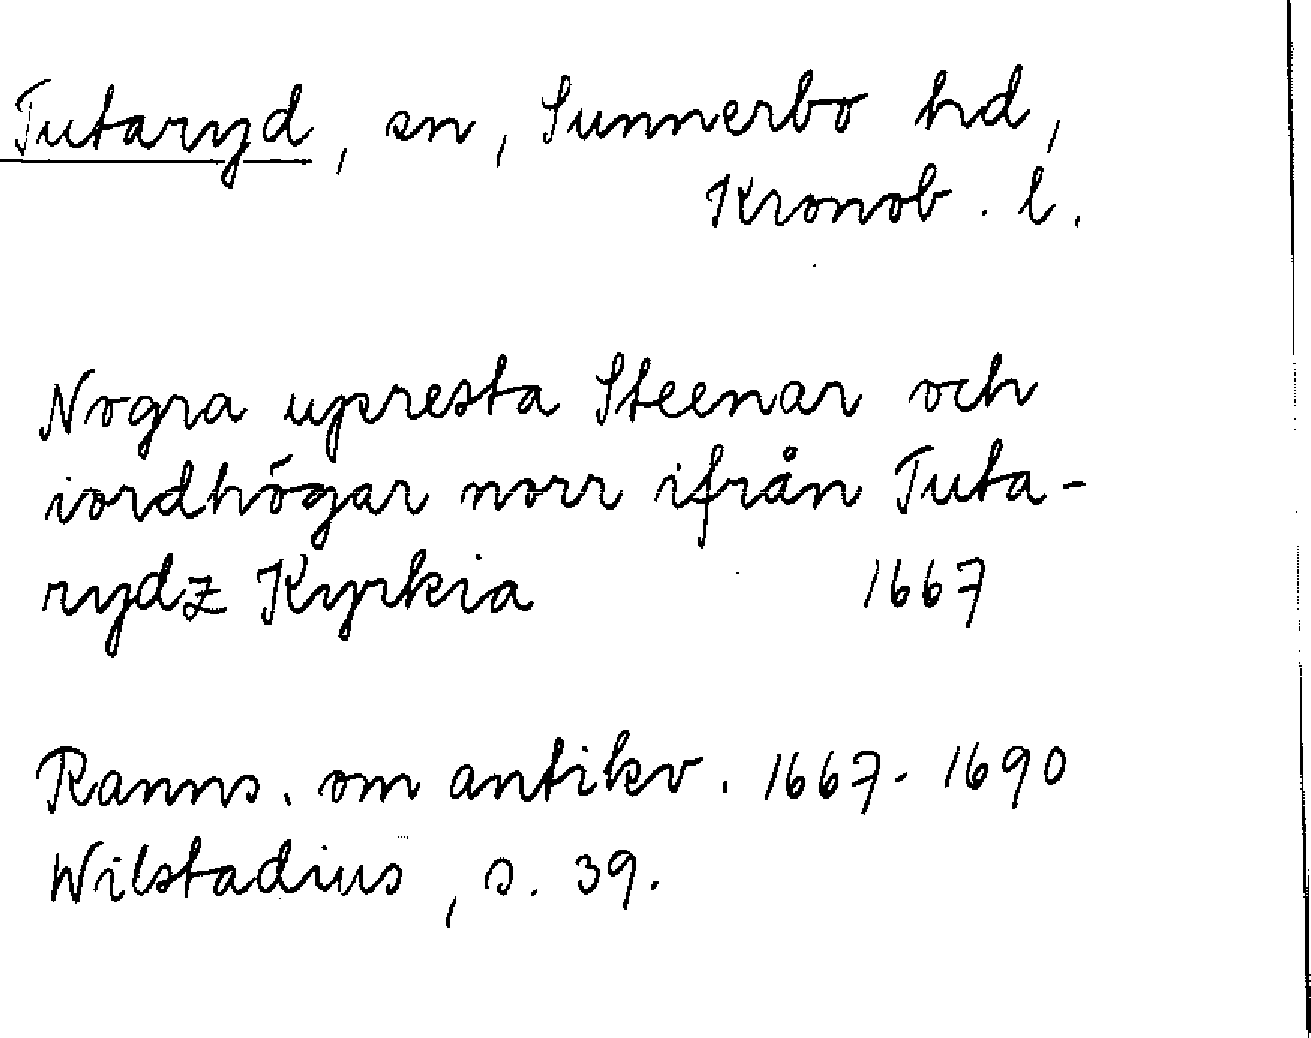 Tutaryd, sn, Sunnerbo hd,
Kronob. l.
Nogra upresta Steenar och
iordhógar norr ifrån Tuta-
rydz Kyrkia 1667
Ranns. om antikv. 1667-1690
Wilstadius, s. 39.